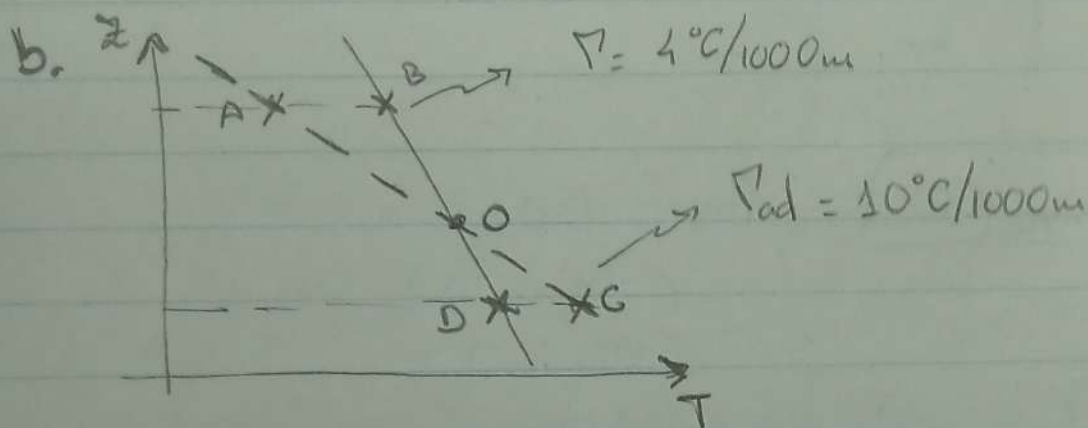 b. z
B Γ = 4°C/1000m
A
Γad = 10°C/1000m
O
D C
T